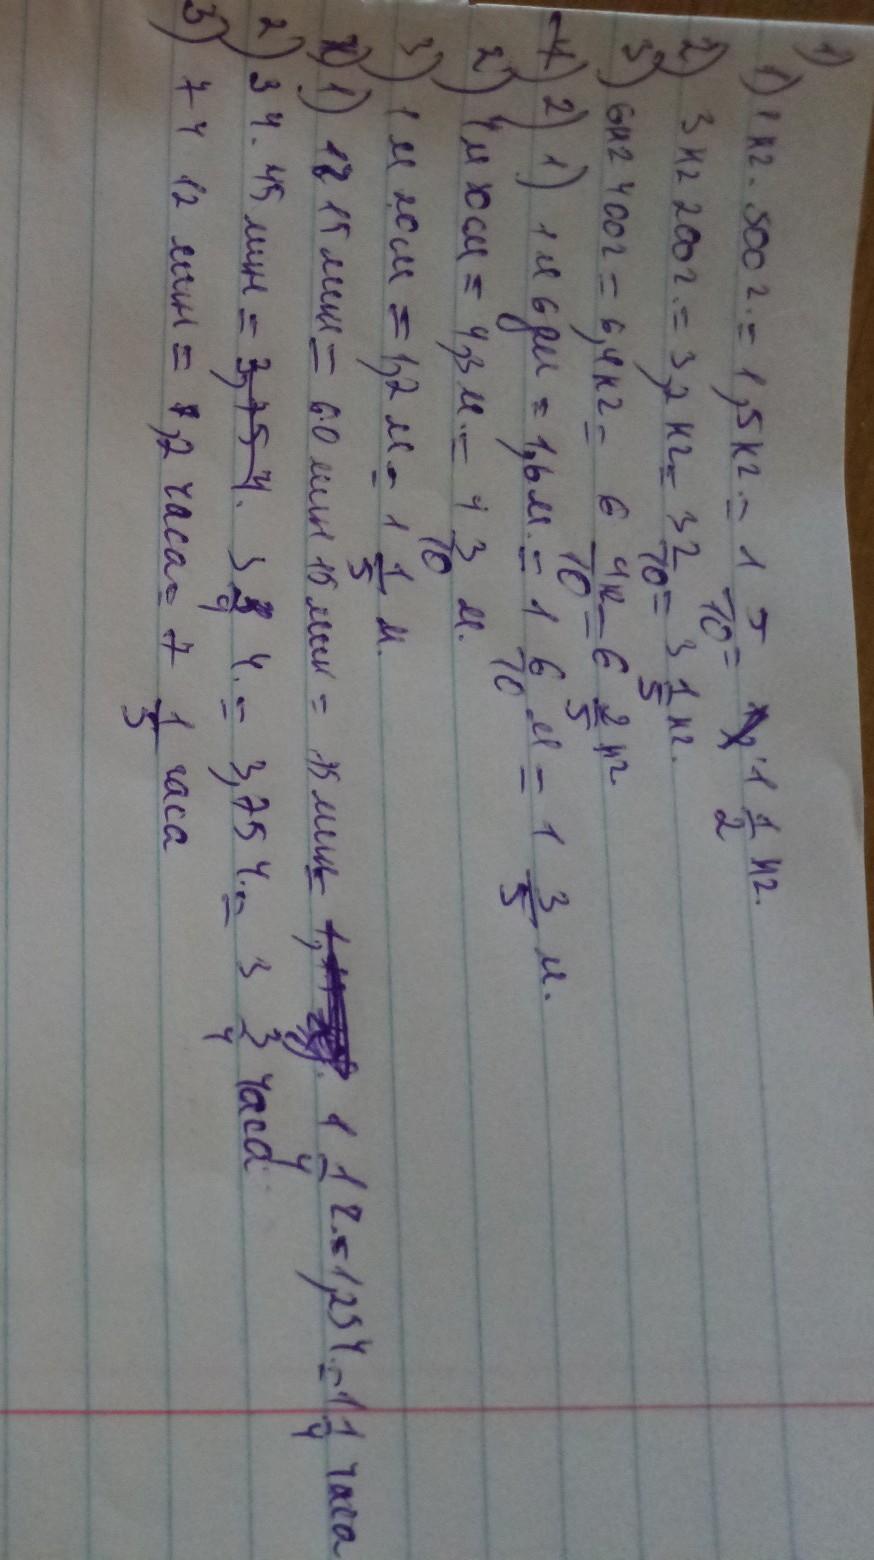 1)
1) 1 кг. 500 г. = 1,5 кг. = 1 5/10 = 1 1/2 кг.
2) 3 кг 200 г. = 3,2 кг = 3 2/10 = 3 1/5 кг.
3) 6 кг 400 г = 6,4 кг = 6 4/10 = 6 2/5 кг
2) 1) 1 м 6 дм = 1,6 м. = 1 6/10 м = 1 3/5 м.
2) 4 м = 4,3 м. = 4 3/10 м.
3) 1 м 20 см = 1,2 м. = 1 1/5 м.
1) 15 мин = 60 мин 15 мин = 15 мин = 1 1/4 ч. = 1,25 ч. = 1 1/4 часа
2) 3 ч. 45 мин = 3,75 ч. 3 3/4 ч. = 3,75 ч. = 3 3/4 часа
3) 7 ч 12 мин = 7,2 часа = 7 1/5 часа